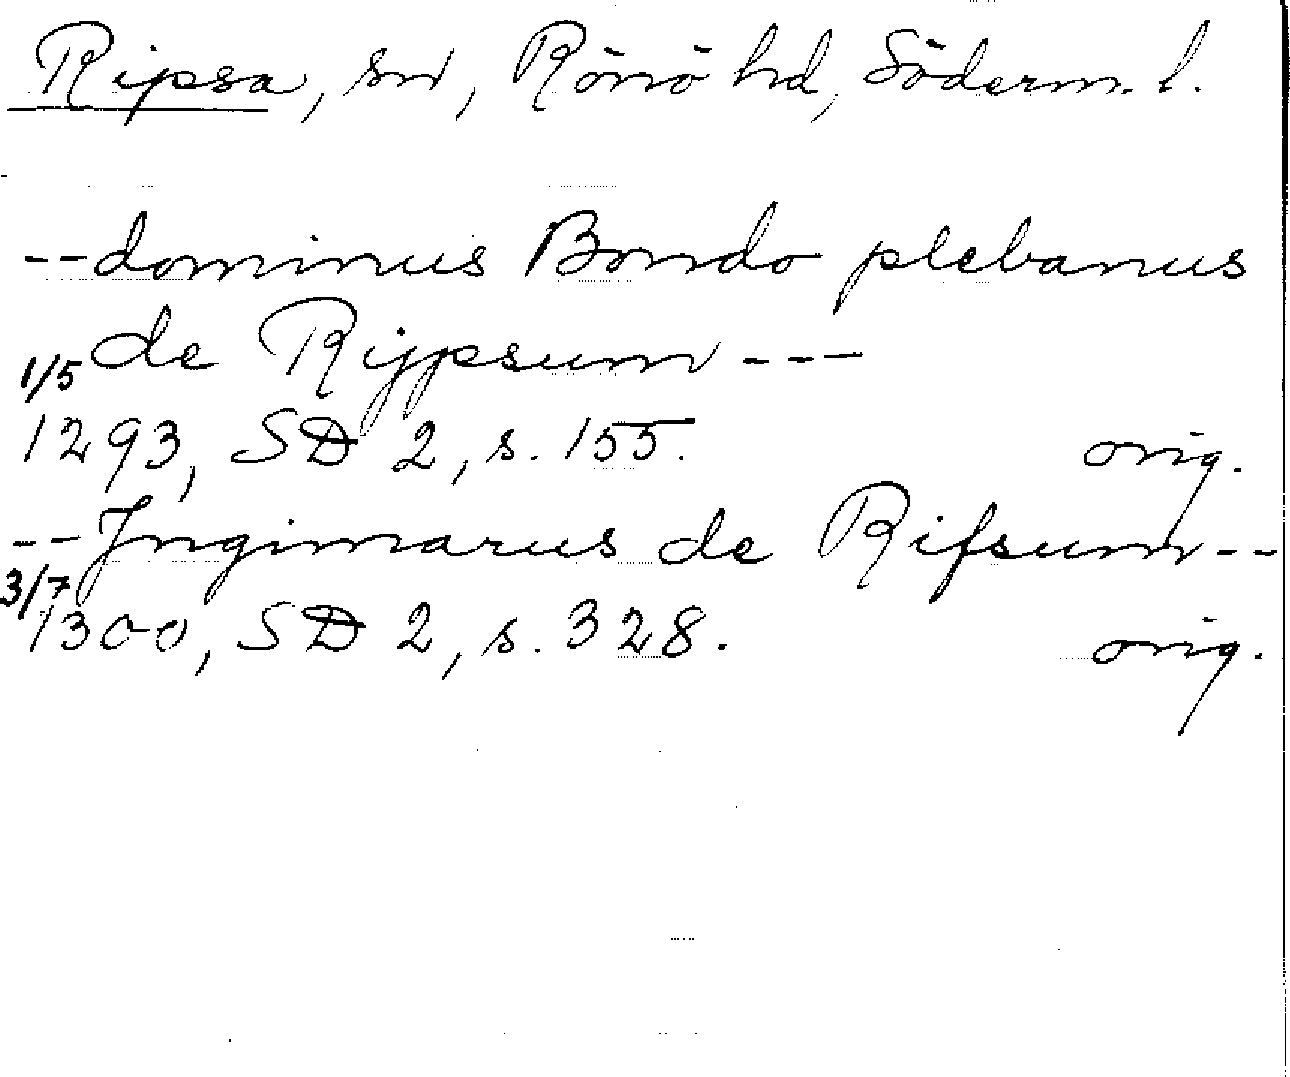 Ripsa, sn, Rönö hd, Söderm. l.
--dominus Bondo plebanus
de Rijpsum---
1/5
1293, SD 2, s. 155. orig.
--Jngimarus de Rifsum--
3/7
1300, SD 2, s. 328. orig.